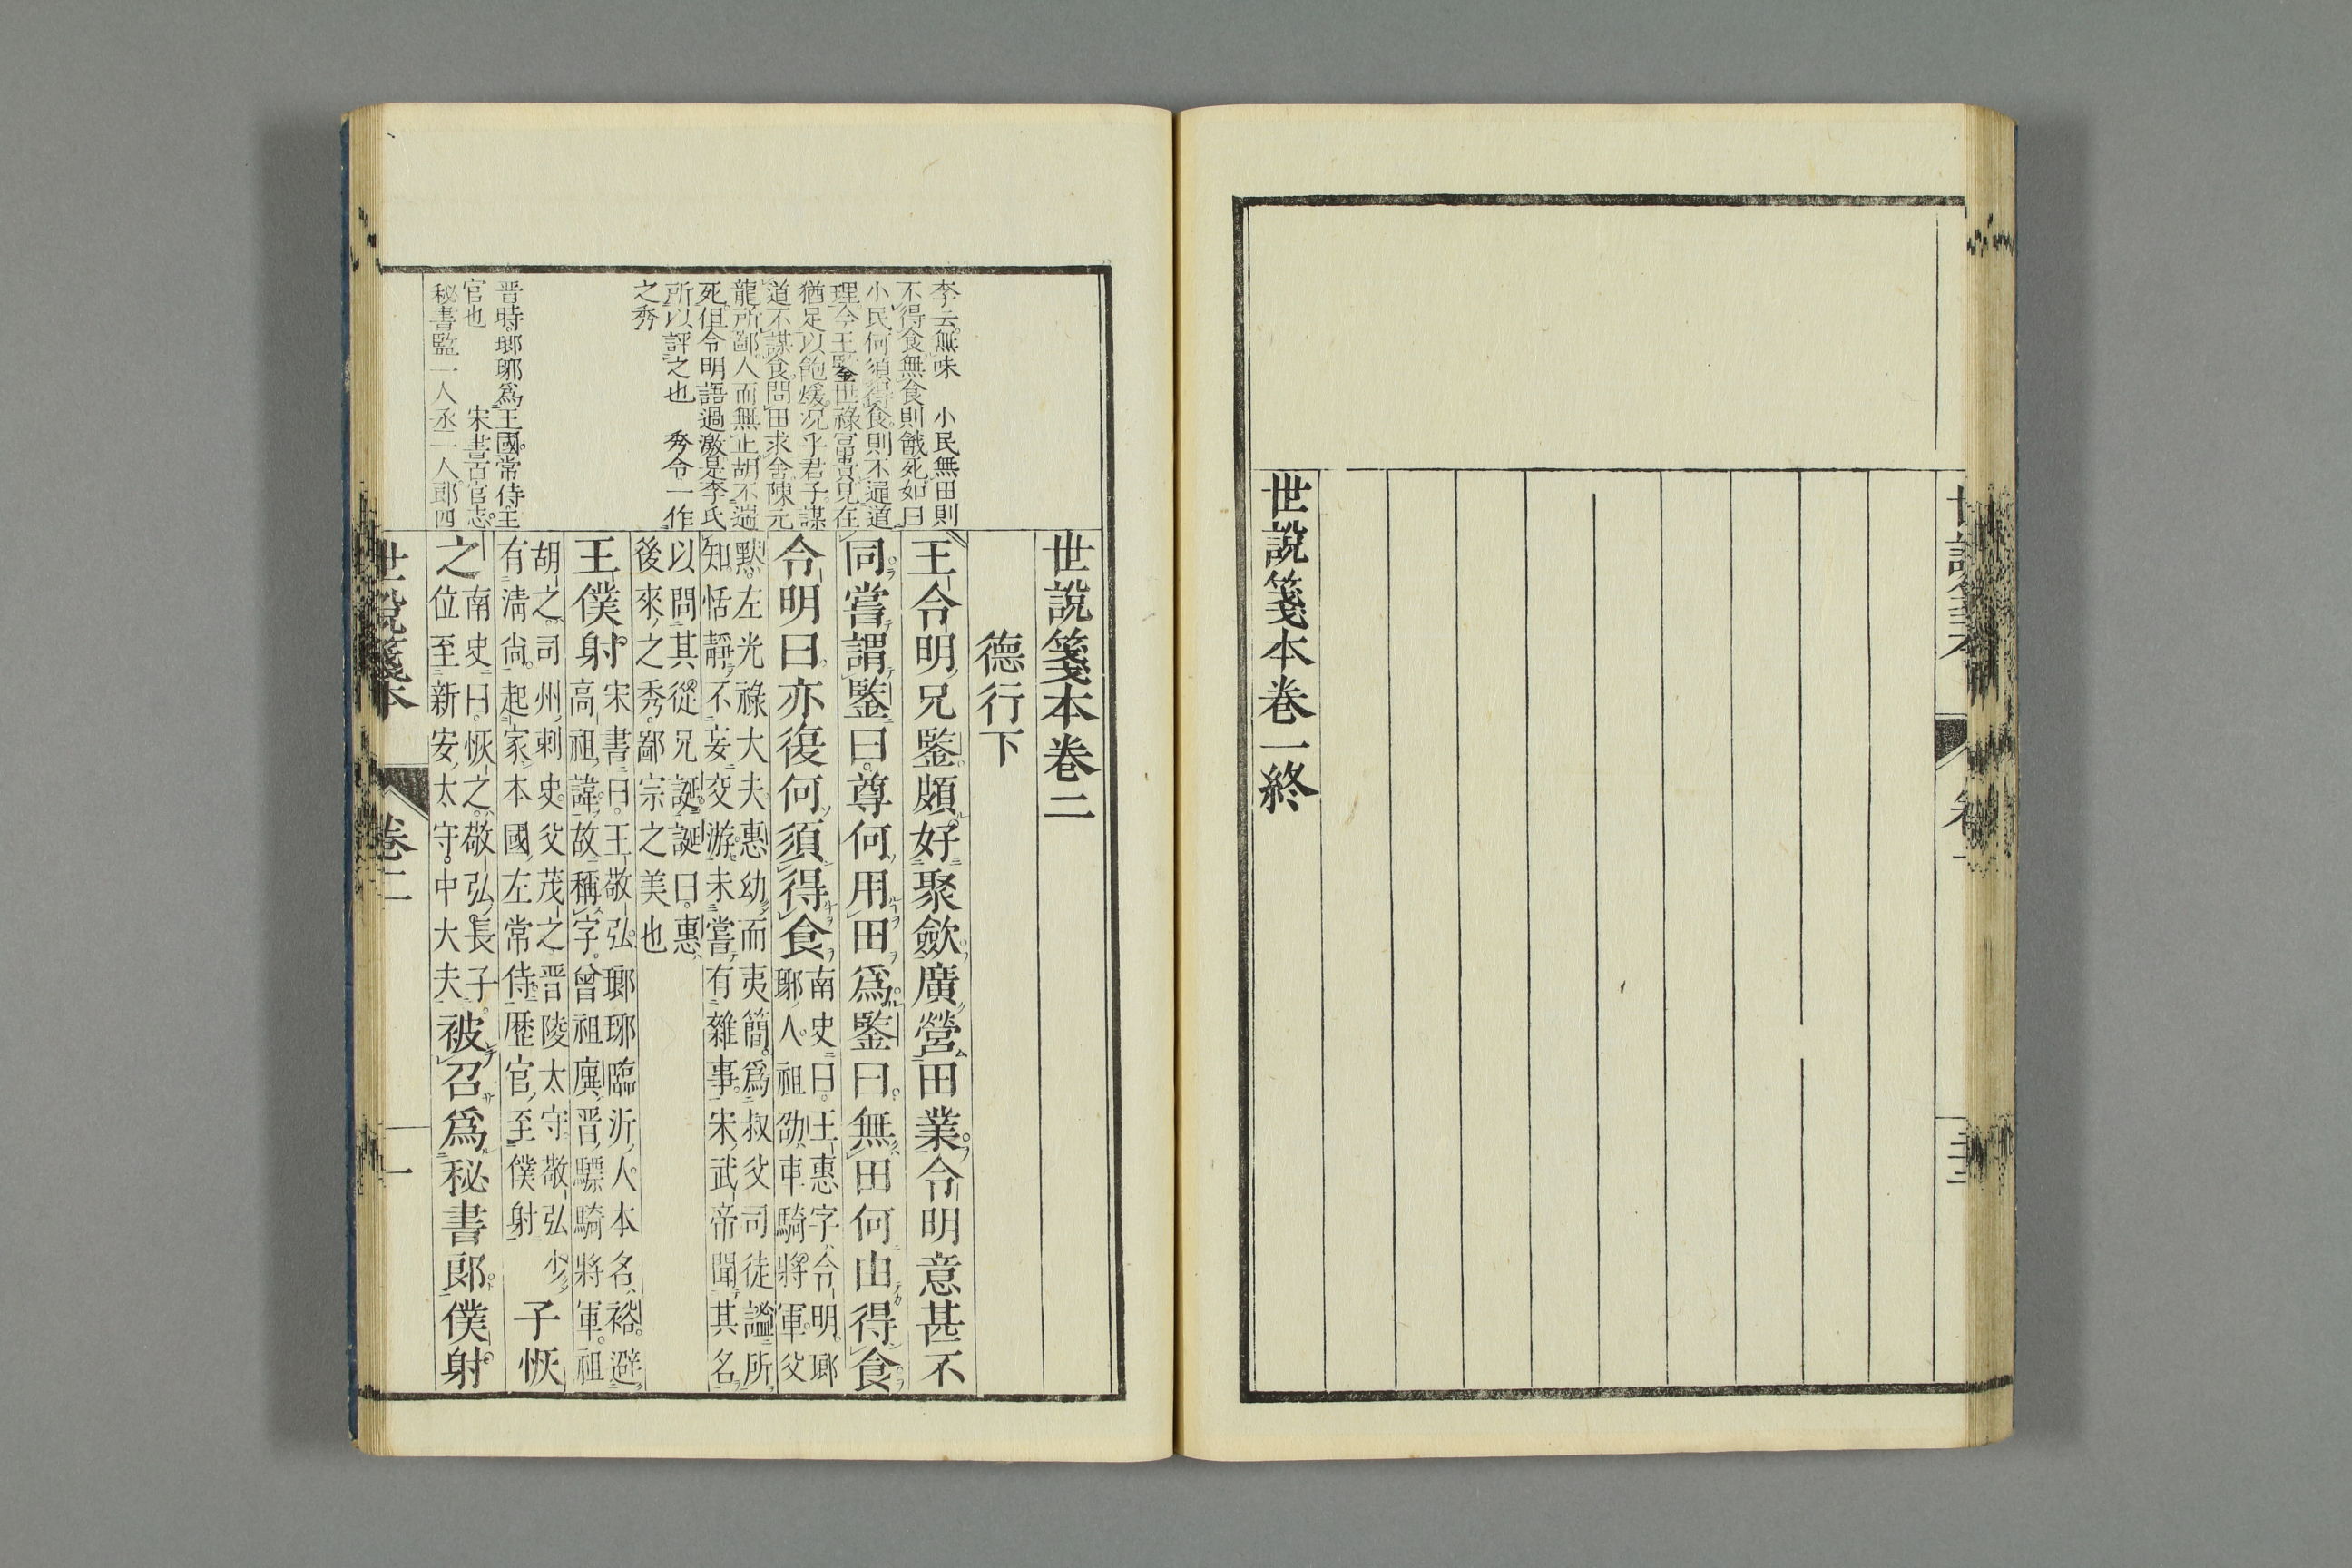 世說箋本卷一終
世說箋本卷二
德行下
王令明兄鑒頗好聚歛廣營田業令明意甚不
同嘗謂鑒曰尊何用田爲鑒曰無田何由得食
令明曰亦復何須得食
南史曰王惠字令明瑯
琊人祖劭車騎將軍父
默左光祿大夫惠幼而夷簡爲叔父司徒謐所
知恬靜不妄交游未嘗有雜事宋武帝聞其名
以問其從兄誕誕曰惠
後來之秀鄙宗之美也
王僕射
宋書曰王敬弘瑯琊臨沂人本名裕避
高祖諱故稱字曾祖廙晋驃騎將軍祖
胡之司州刺史父茂之晋陵太守敬弘少
有清尚起家本國左常侍歷官至僕射
子恢
之
南史曰恢之敬弘長子
位至新安太守中大夫
被召爲秘書郎僕射
李云無味　小民無田則
不得食無食則餓死如曰
小民何須得食則不通道
理今王鑒世祿富貴見在
猶足以飽煖况乎君子謀
道不謀食問田求舍陳元
龍所鄙人而無止胡不遄
死但令明語過激是李氏
所以評之也　秀令一作
之秀
晋時瑯琊爲王國常侍王
官也　宋書百官志
秘書監一人丞一人郎四
世說箋本
卷二
一